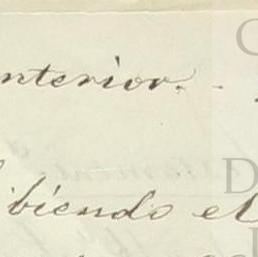 nterior.
biendo el